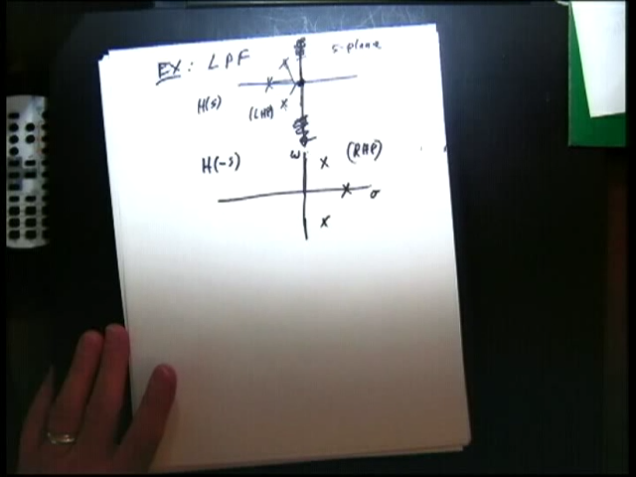 EX: LPF
s-plane
H(s)
(LHP)
ω
H(-s)
(RHP)
σ